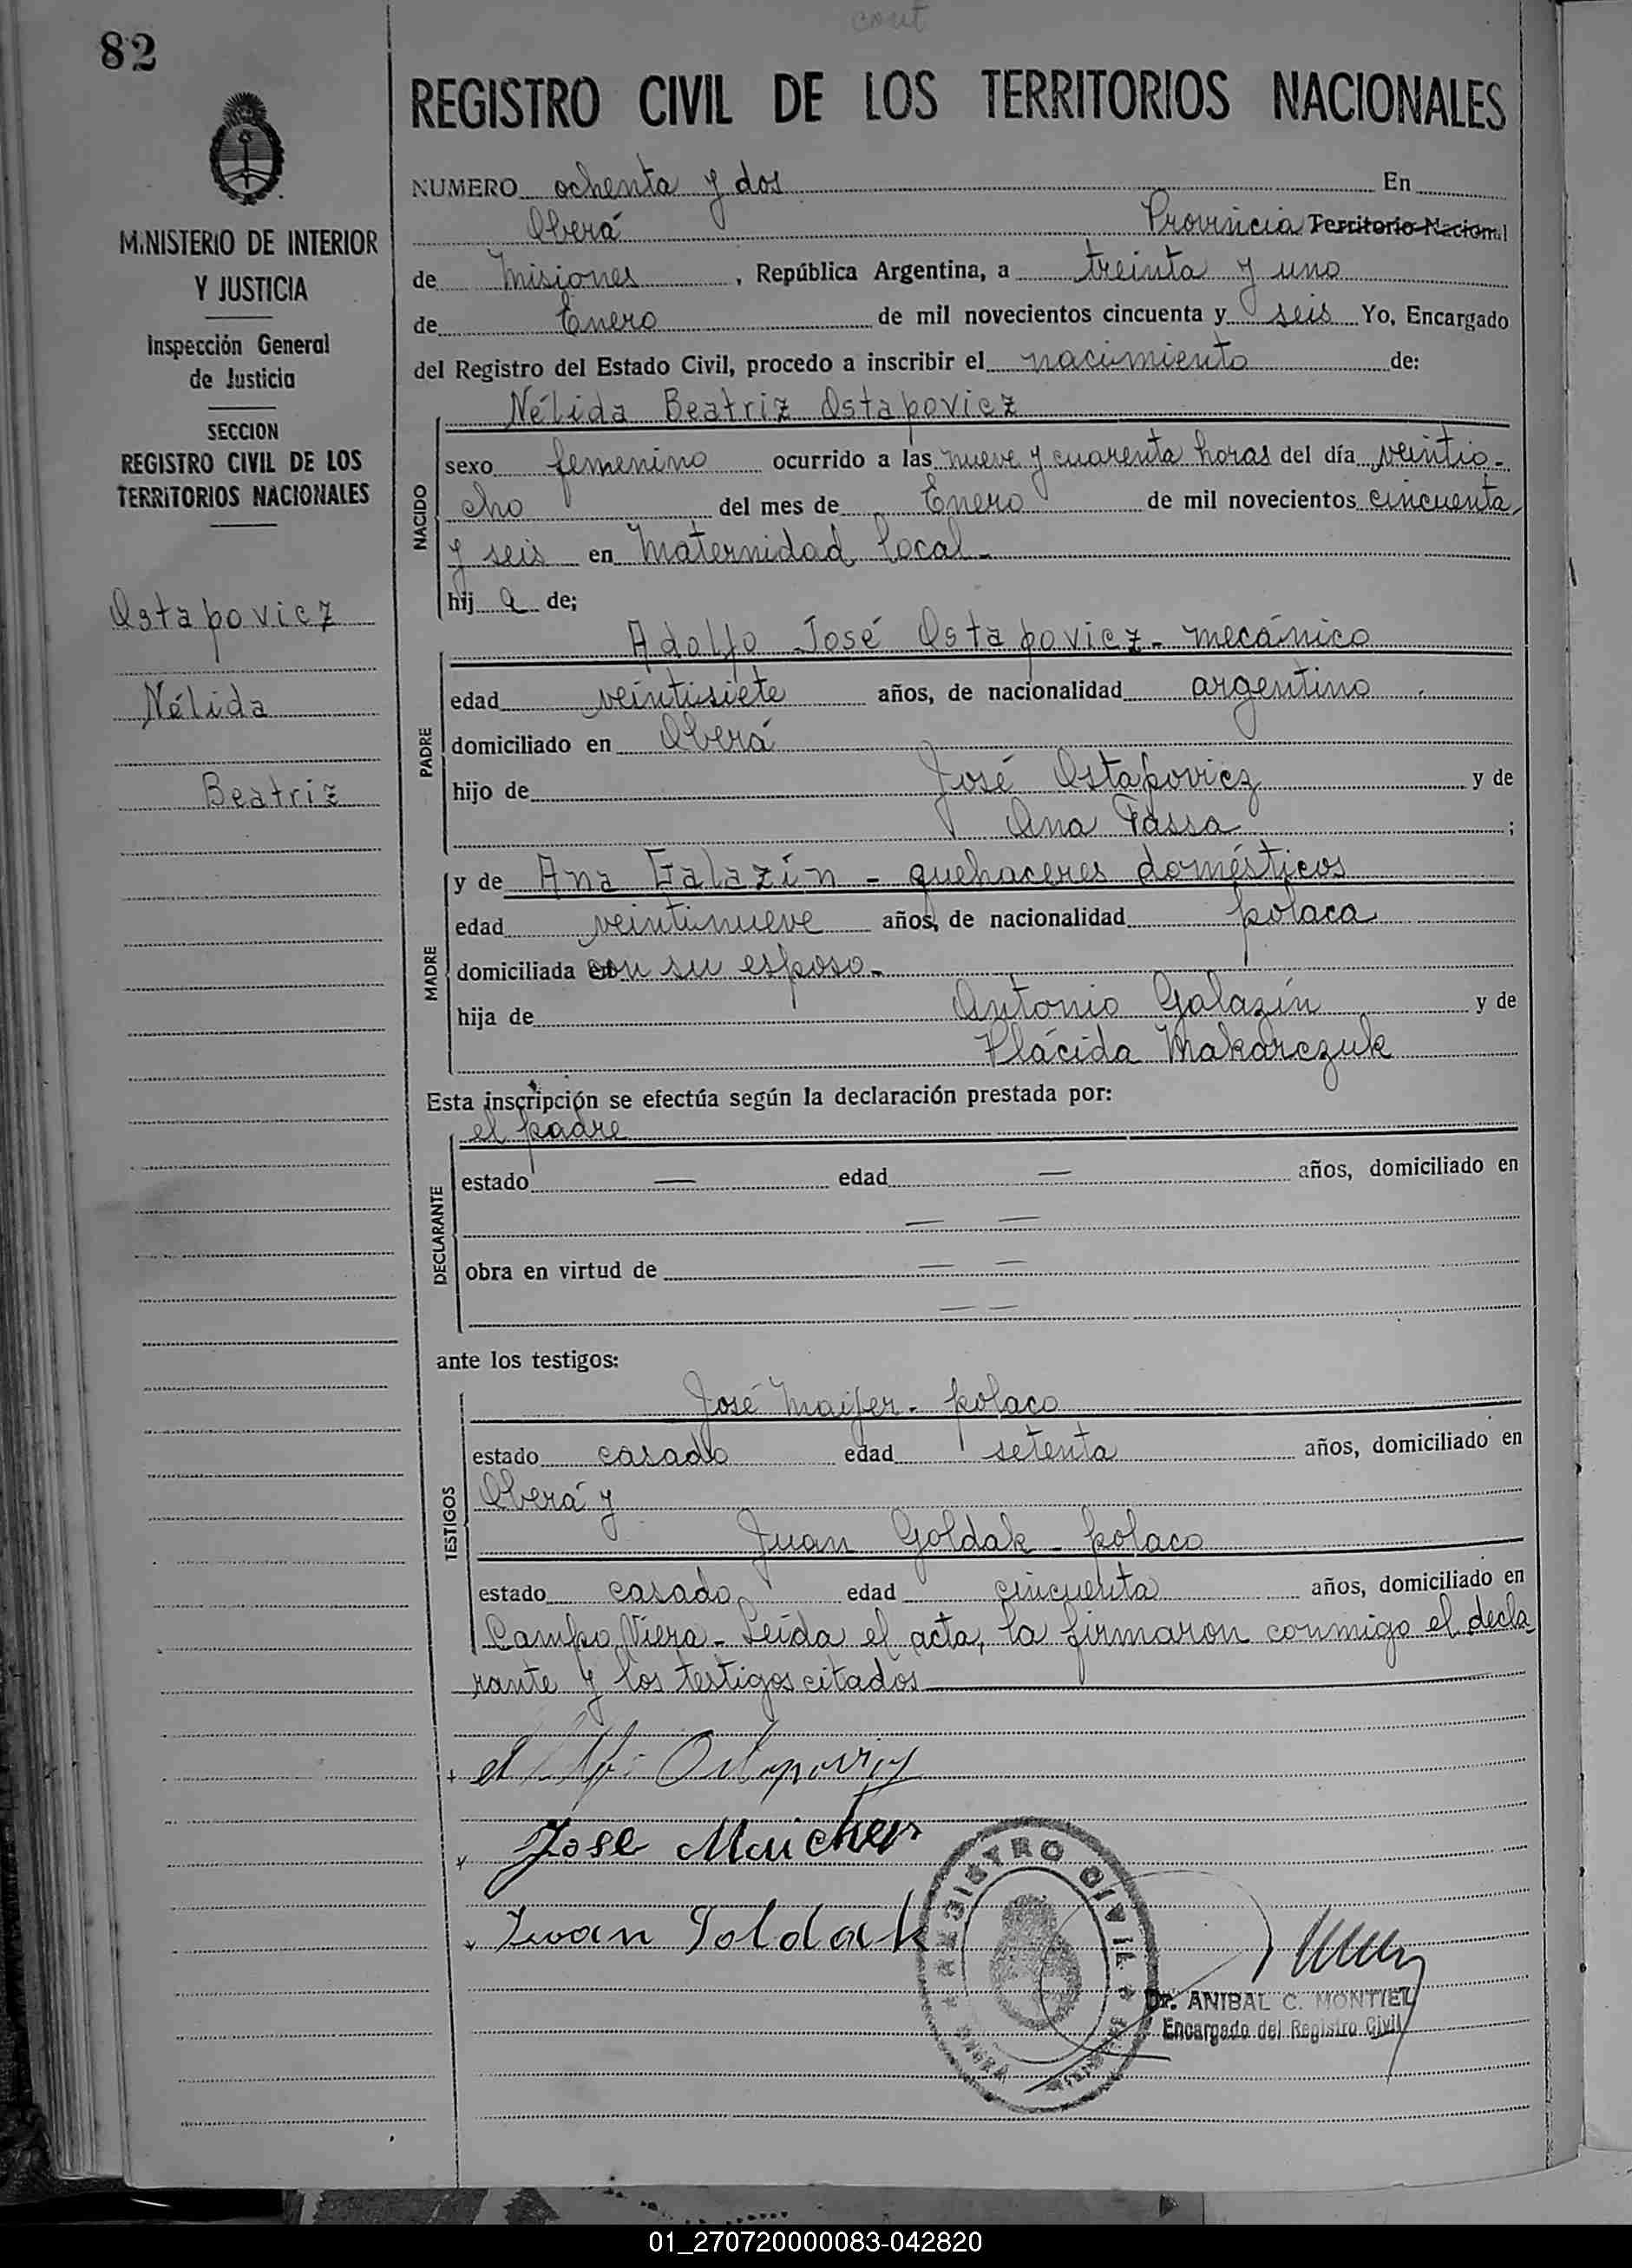 cont
82
REGISTRO CIVIL DE LOS TERRITORIOS NACIONALES
MINISTERIO DE INTERIOR
Y JUSTICIA
Inspección General
de Justicia
SECCION
REGISTRO CIVIL DE LOS
TERRITORIOS NACIONALES
Ostapovicz
Nélida
Beatriz
NUMERO ochenta y dos En
Oberá Provincia Territorio Nacional
de Misiones, República Argentina, a treinta y uno
de Enero de mil novecientos cincuenta y seis Yo, Encargado
del Registro del Estado Civil, procedo a inscribir el nacimiento de:
NACIDO
Nélida Beatriz Ostapovicz
sexo femenino ocurrido a las nueve y cuarenta horas del día veintio-
cho del mes de Enero de mil novecientos cincuenta
y seis en Maternidad local-
hij a de;
PADRE
Adolfo José Ostapovicz - mecánico
edad veintisiete años, de nacionalidad argentino
domiciliado en Oberá
hijo de José Ostapovicz y de
Ana Passa ;
MADRE
y de Ana Galazin - quehaceres domésticos
edad veintinueve años, de nacionalidad polaca
domiciliada con su esposo-
hija de Antonio Galazin y de
Plácida Makarczuk
Esta inscripción se efectúa según la declaración prestada por:
DECLARANTE
el padre
estado — edad — años, domiciliado en
— —
obra en virtud de — —
— —
ante los testigos:
TESTIGOS
José Maijer - polaco
estado casado edad setenta años, domiciliado en
Oberá y
Juan Goldak - polaco
estado casado edad cincuenta años, domiciliado en
Campo Viera - Leída el acta, la firmaron conmigo el decla-
rante y los testigos citados
Jose Maicher
Iwan Goldak
REGISTRO CIVIL
Dr. ANIBAL C. MONTIEL
Encargado del Registro Civil
01_270720000083-042820